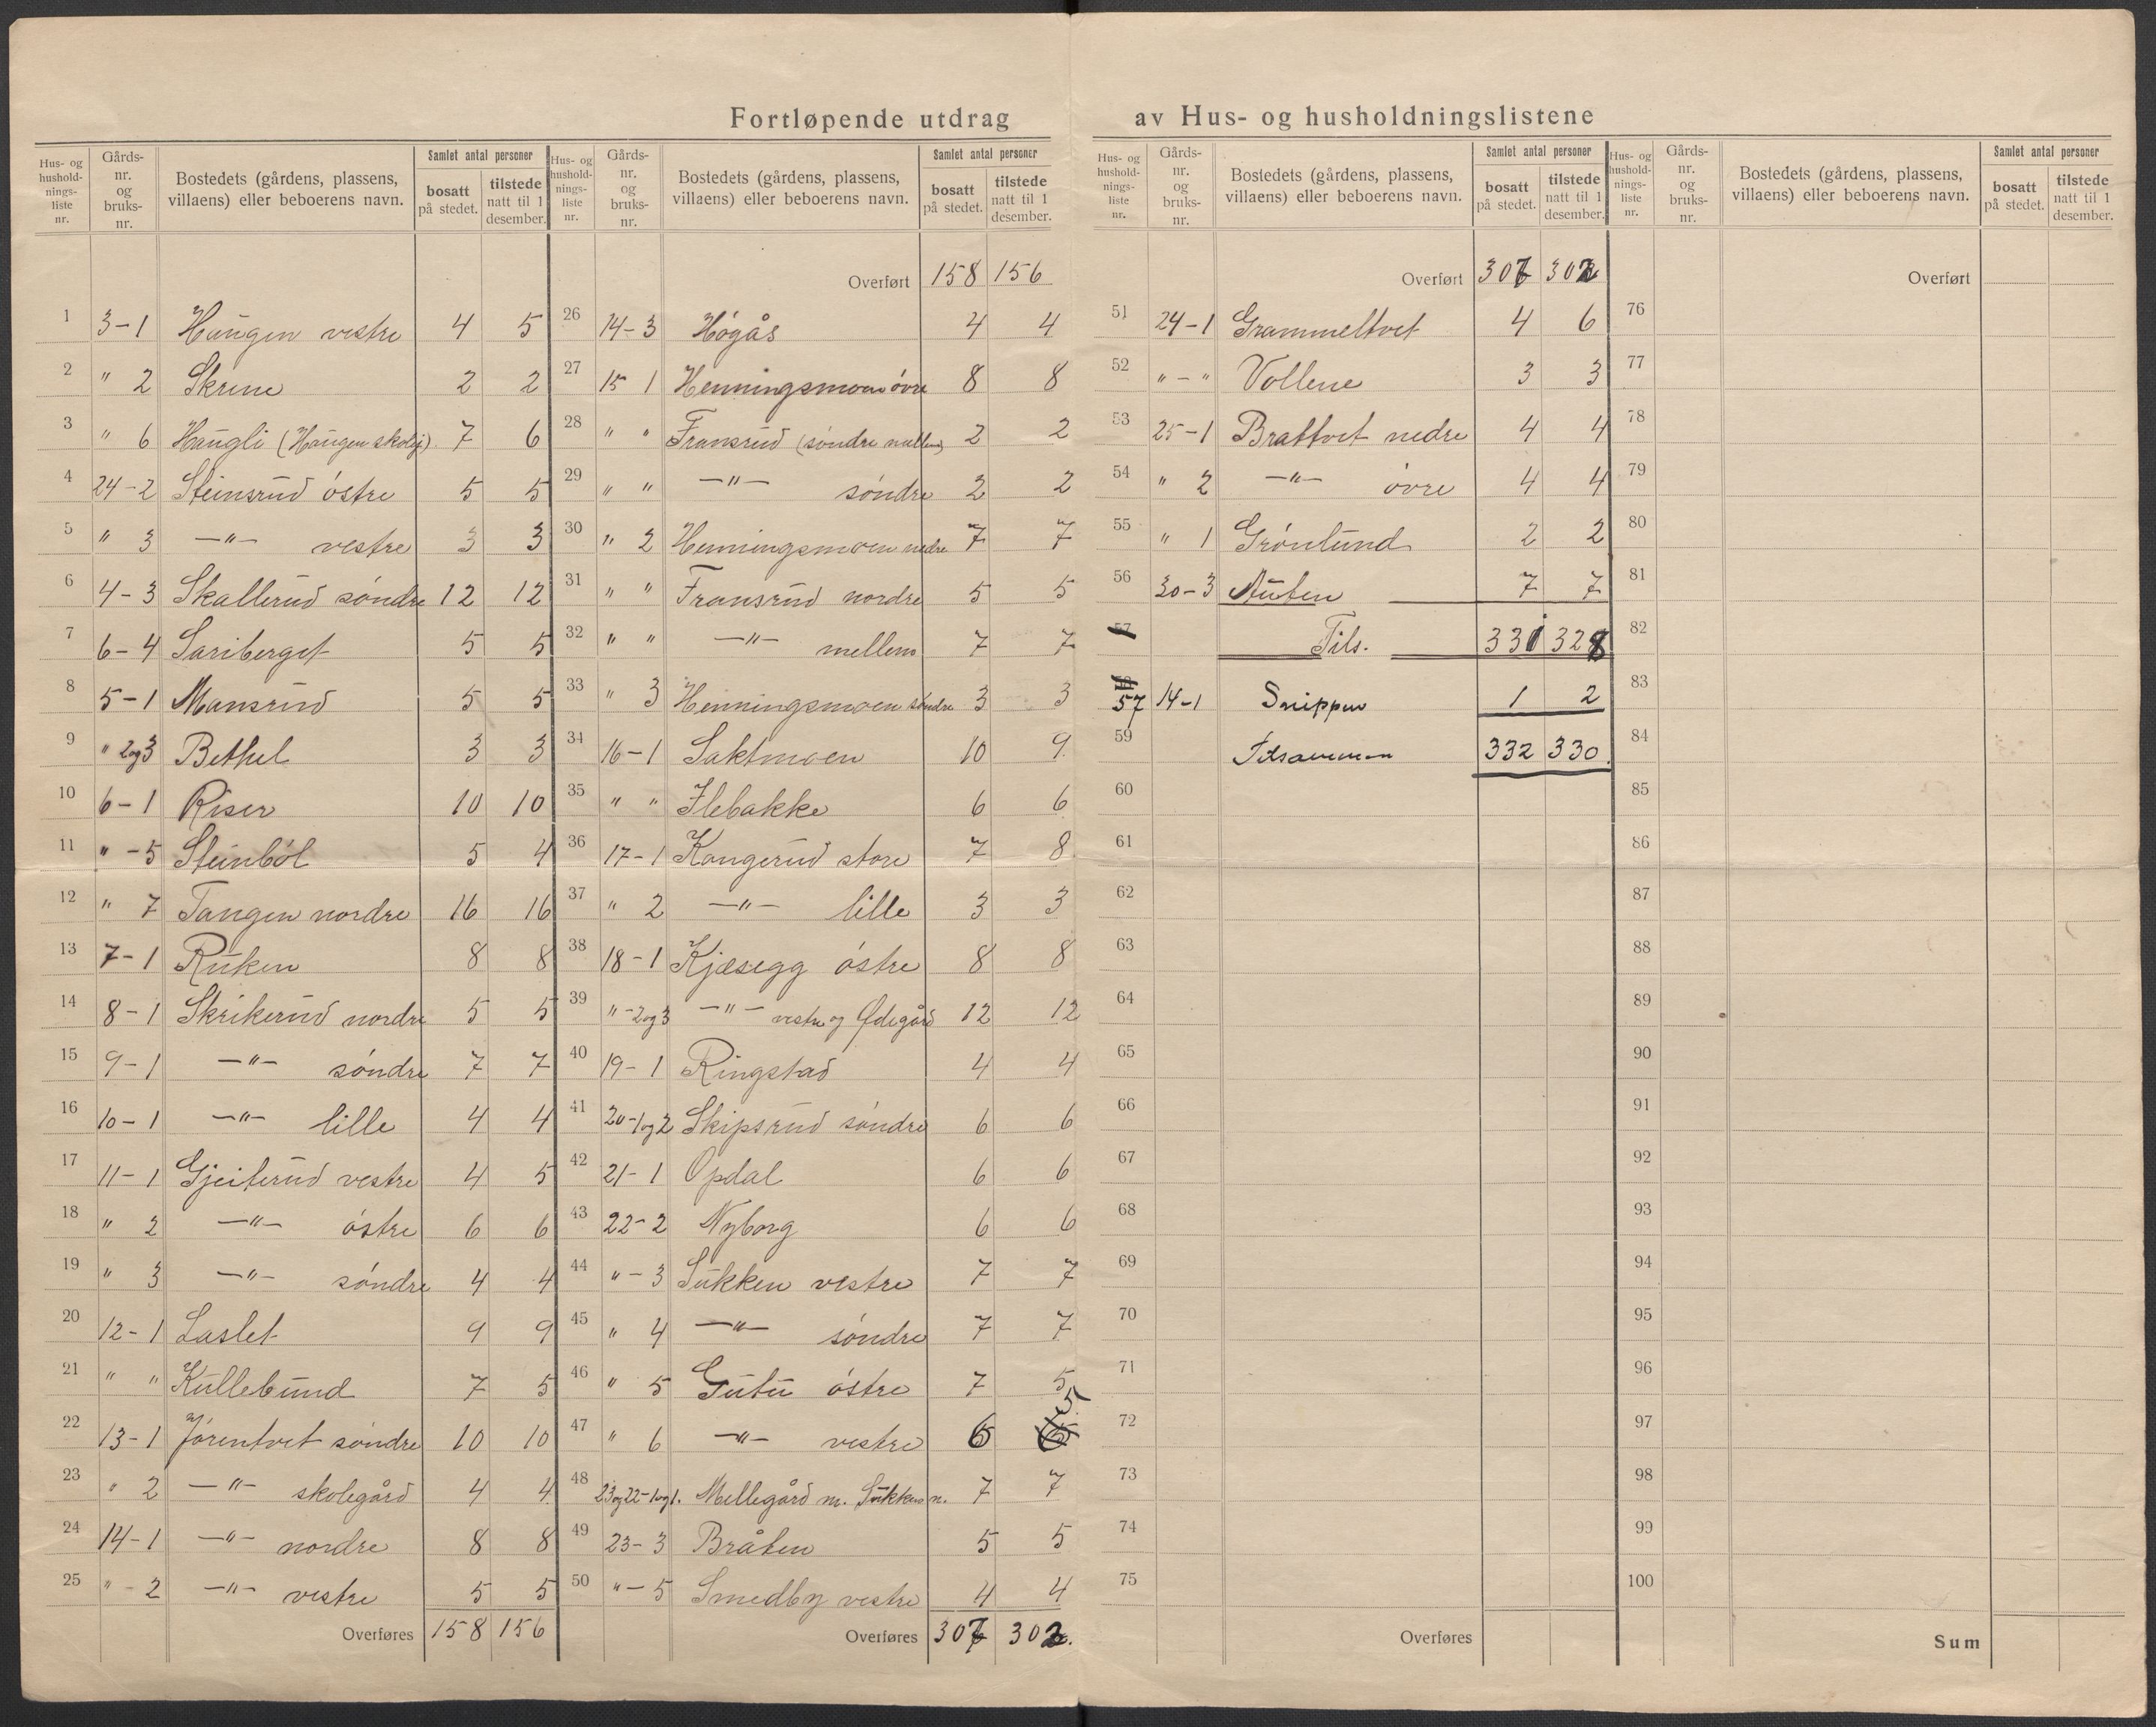 Fortløpende utdrag av Hus- og husholdningslistene
Hus- og hushold-nings-liste nr. | Gårds-nr. og bruks-nr. | Bostedets (gårdens, plassens, villaens) eller beboerens navn. | Samlet antal personer | bosatt på stedet. | tilstede natt til 1 desember.
1 3-1 Haugen vestre 4 5
2 " 2 Skrine 2 2
3 " 6 Haugli (Haugen skolej) 7 6
4 24-2 Steinsrud østre 5 5
5 " 3 —"— vestre 3 3
6 4-3 Skallerud søndre 12 12
7 6-4 Sariberget 5 5
8 5-1 Mansrud 5 5
9 " 2og3 Bethel 3 3
10 6-1 Riser 10 10
11 " -5 Steinbøl 5 4
12 " 7 Tangen nordre 16 16
13 7-1 Ruken 8 8
14 8-1 Skrikerud nordre 5 5
15 9-1 —"— søndre 7 7
16 10-1 —"— lille 4 4
17 11-1 Gjeiterud vestre 4 5
18 " 2 —"— østre 6 6
19 " 3 —"— søndre 4 4
20 12-1 Laslet 9 9
21 " " Kullebund 7 5
22 13-1 Jørentvet søndre 10 10
23 " 2 —"— skolegård 4 4
24 14-1 —"— nordre 8 8
25 " -2 —"— vestre 5 5
Overføres 158 156
Hus- og hushold-nings-liste nr. | Gårds-nr. og bruks-nr. | Bostedets (gårdens, plassens, villaens) eller beboerens navn. | Samlet antal personer | bosatt på stedet. | tilstede natt til 1 desember.
Overført 158 156
26 14-3 Høgås 4 4
27 15 1 Henningsmoen øvre 8 8
28 " " Fransrud (søndre mellem) 2 2
29 " " —"— søndre 2 2
30 " 2 Henningsmoen nedre 7 7
31 " " Fransrud nordre 5 5
32 " " —"— mellem 7 7
33 " 3 Henningsmoen søndre 3 3
34 16-1 Saktmoen 10 9
35 " " Ilebakke 6 6
36 17-1 Kongerud store 7 8
37 " 2 —"— lille 3 3
38 18-1 Kjæsegg østre 8 8
39 "-2og3 —"— vestre og Ødegård 12 12
40 19-1 Ringstad 4 4
41 20-1og2 Skipsrud søndre 6 6
42 21-1 Opdal 6 6
43 22-2 Nyborg 6 6
44 "-3 Sukken vestre 7 7
45 " 4 —"— søndre 7 7
46 " 5 Gutu østre 7 5
47 " 6 —"— vestre 6 5
48 23og22-1og1. Mellegård m. Sukken n. 7 7
49 23-3 Bråten 5 5
50 "-5 Smedby vestre 4 4
Overføres 307 302.
Hus- og hushold-nings-liste nr. | Gårds-nr. og bruks-nr. | Bostedets (gårdens, plassens, villaens) eller beboerens navn. | Samlet antal personer | bosatt på stedet. | tilstede natt til 1 desember.
Overført 307 302
51 24-1 Grammeltvet 4 6
52 "-" Vollene 3 3
53 25-1 Brattvet nedre 4 4
54 " 2 —"— øvre 4 4
55 " 1 Grønlund 2 2
56 30-3 Auten 7 7
57 Tils. 331 328
58 57 14-1 Snippen 1 2
59 Tilsammen 332 330.
60
61
62
63
64
65
66
67
68
69
70
71
72
73
74
75
Overføres
Hus- og hushold-nings-liste nr. | Gårds-nr. og bruks-nr. | Bostedets (gårdens, plassens, villaens) eller beboerens navn. | Samlet antal personer | bosatt på stedet. | tilstede natt til 1 desember.
Overført
76
77
78
79
80
81
82
83
84
85
86
87
88
89
90
91
92
93
94
95
96
97
98
99
100
Sum